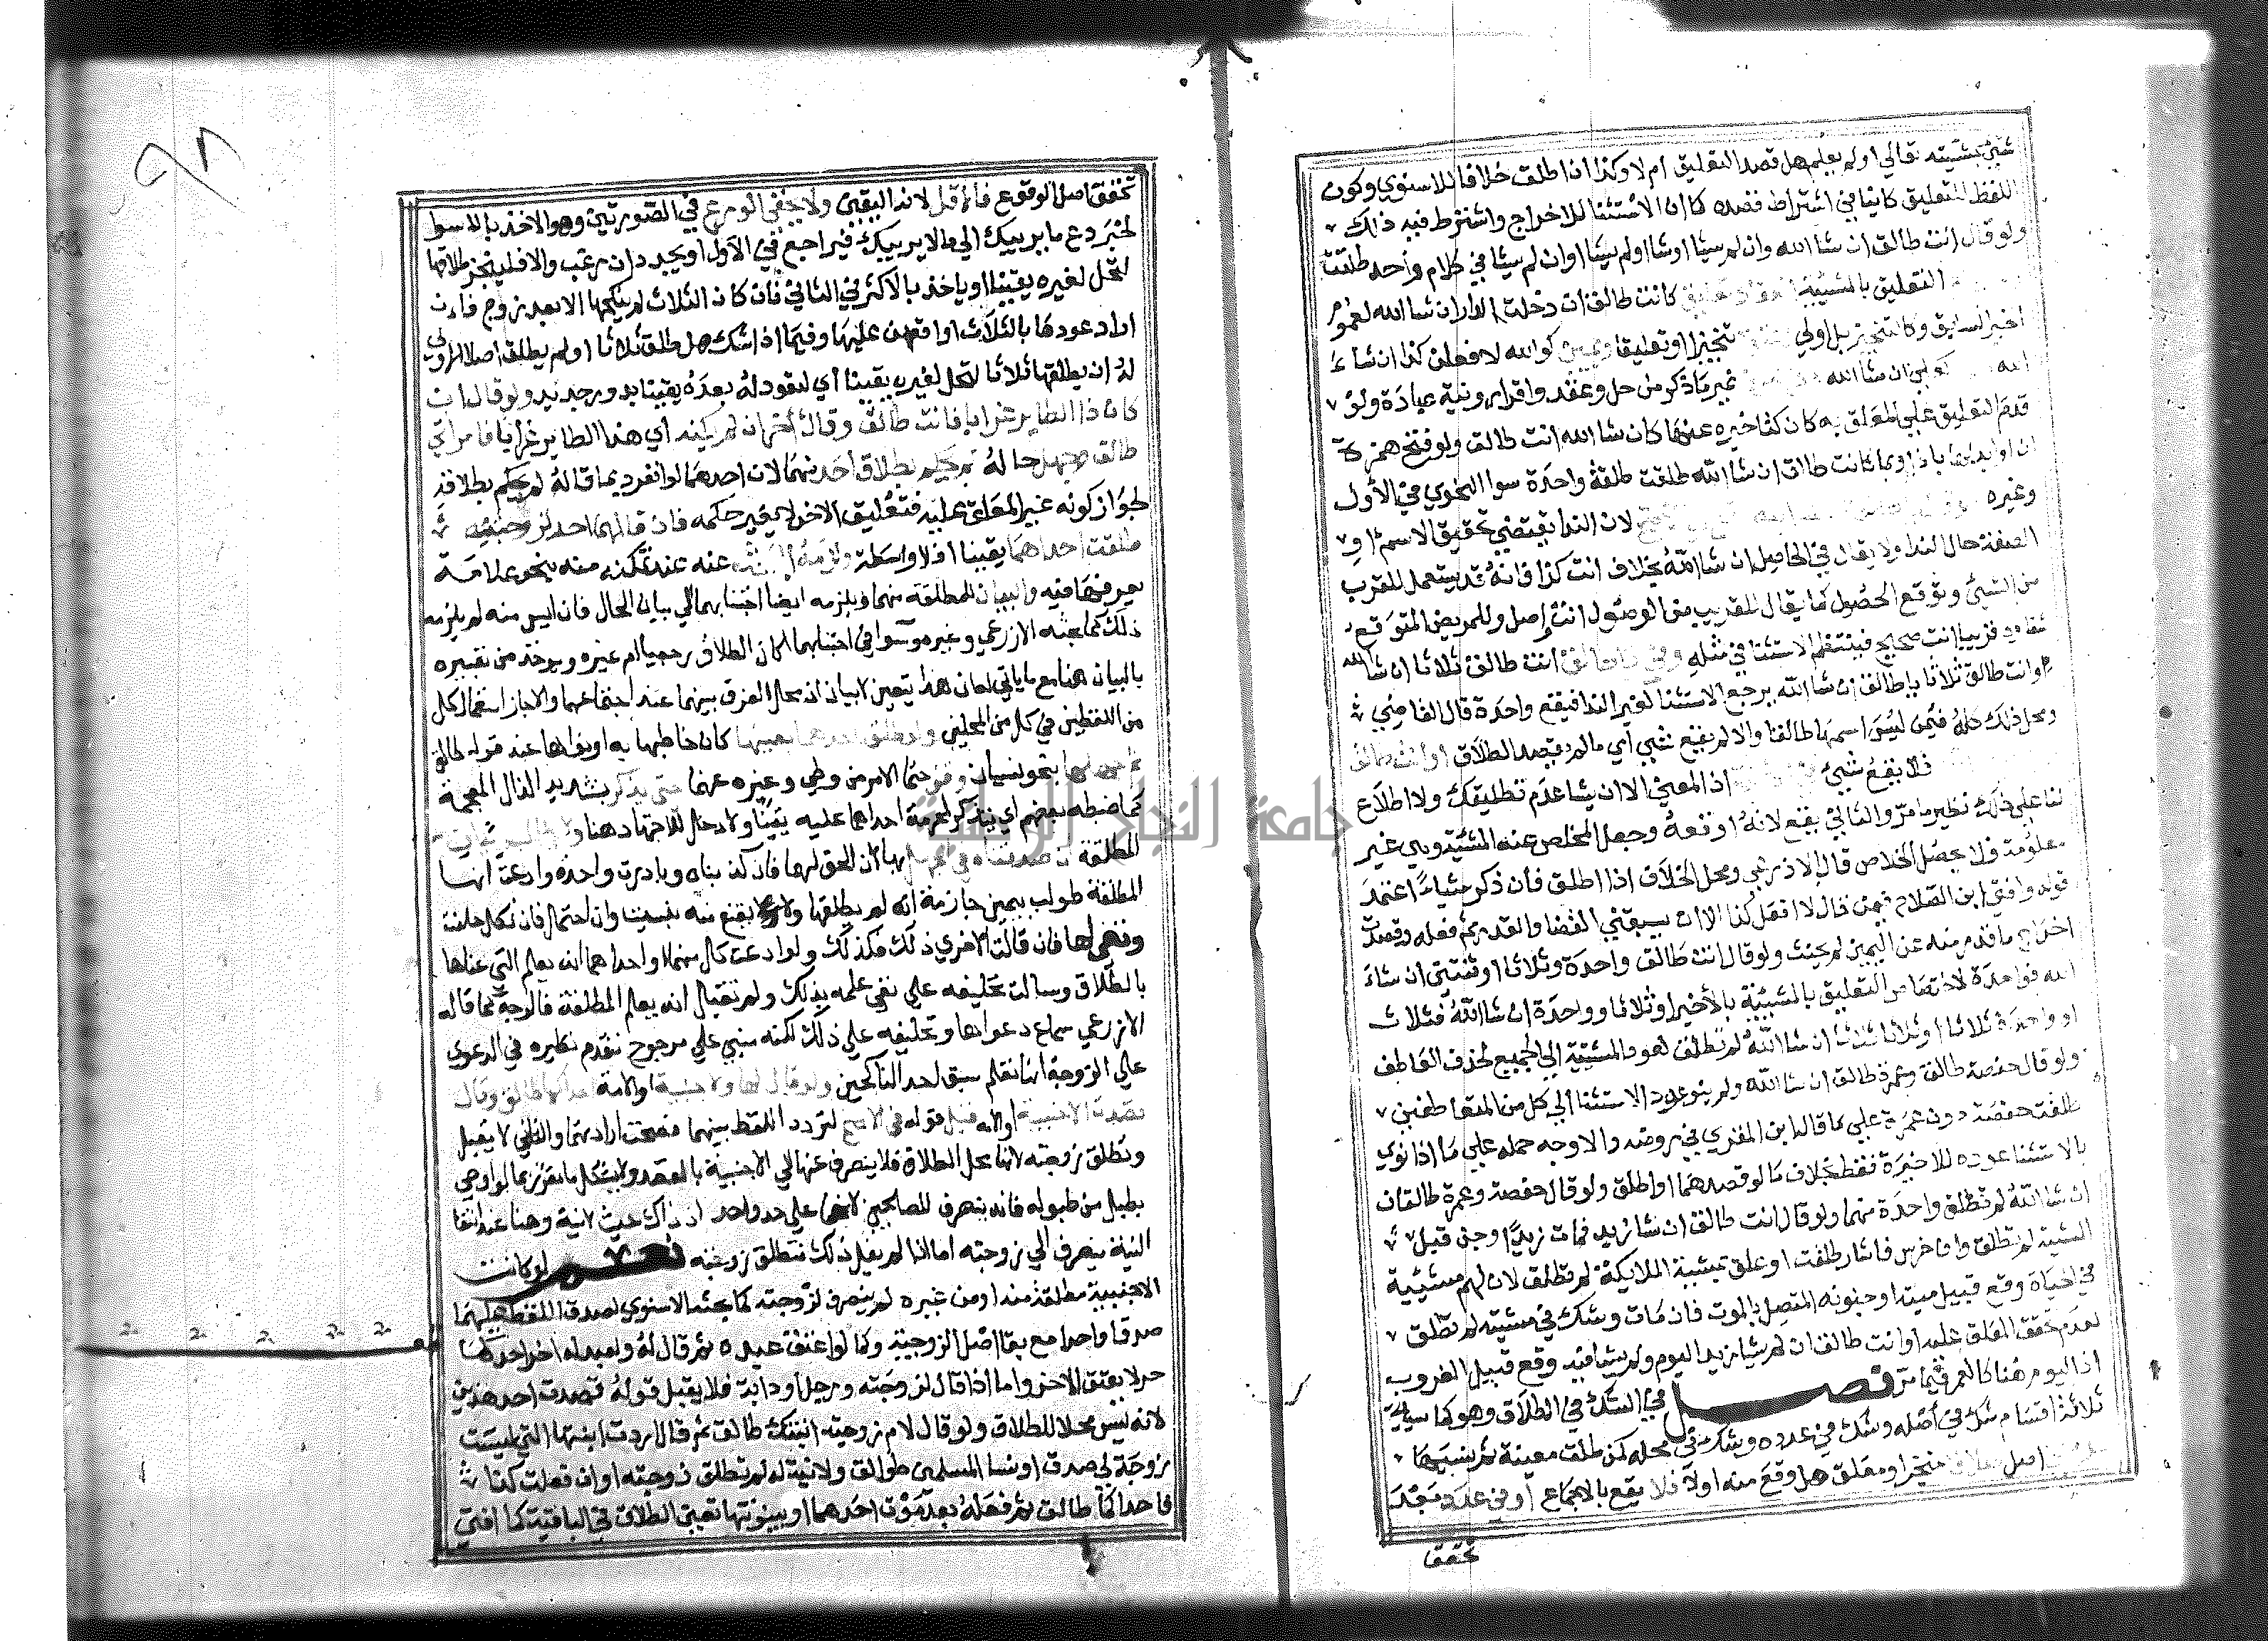 شيئ بمشيئته تعالي او لم يعلم هل قصد التعليق ام لا وكذا ان اطلق خلافا للاسنوي وكون
اللفظ للتعليق كافيا في اشتراط قصده كما ان الاستثنا للاخراج واشترط فيه ذلك
ولو قال انت طالق ان شا الله وان لم يشا او شا او لم يشا او ان لم يشا في كلام واحد طلقت
التعليق بالمشيئة كانت طالق ان دخلت الدار ان شا الله لعموم
الخبر السابق وكالتنجيز بل اولي تنجيزا او تعليقا ويمين كو الله لافعلن كذا ان شاء
الله كعلي ان شا الله غير ما ذكر من حل وعقد واقرار ونية عبادة ولو
قدم التعليق علي المعلق به كان كتاخيره عنها كان شا الله انت طالق ولو فتح همزة
ان او ابدلها باذ او بما كانت طالق ان شا الله طلقت طلقة واحدة سوا النحوي في الاول
وغيره لان الندا يقتضي تحقيق الاسم او
الصفة حال الندا ولا يقال في الحاصل ان شا الله بخلاف انت كذا فانه قد يستعمل للقرب
من الشيئ وتوقع الحصول كما يقال للقريب من الوصول انت واصل وللمريض المتوقع
شفاوه قريبا انت صحيح فينتظم الاستثنا في مثله انت طالق ثلاثا ان شا الله
او انت طالق ثلاثا يا طالق ان شا الله يرجع الاستثنا لغير الندا فيقع واحدة قال القاضي
ومحل ذلك كله فيمن ليس اسمها طالقا والا لم يقع شيئ اي ما لم يقصد الطلاق او انت طالق
فلا يقع شيئ اذ المعني الا ان يشا عدم تطليقك ولا اطلاع
لنا علي ذلك نظير ما مر والثاني يقع لانه اوقعه وجعل المخلص عنه المشيئة وهي غير
معلومة فلا يحصل الخلاص قال الاذرعي ومحل الخلاف اذا اطلق فان ذكر شيا اعتمد
قوله وافتي ابن الصلاح فيمن قال لا افعل كذا الا ان يسبقني القضا والقدر ثم فعله وقصد
اخراج ما قدر منه عن اليمين لم يحنث ولو قال انت طالق واحدة وثلاثا او ثنتين ان شاء
الله فواحدة لاختصاص التعليق بالمشيئة بالاخير او ثلاثا وواحدة ان شا الله فثلاث
او واحدة ثلاثا او ثلاثا ثلاثا ان شا الله لم تطلق لعود المشيئة الي الجميع لحذف العاطف
ولو قال حفصة طالق وعمرة طالق ان شا الله ولم ينو عود الاستثنا الي كل من المتعاطفين
طلقت حفصة دون عمرة علي ما قاله ابن المقري في روضه والاوجه حمله علي ما اذا نوي
بالاستثنا عوده للاخيرة فقط بخلاف ما لو قصدهما او اطلق ولو قال حفصة وعمرة طالقان
ان شا الله لم تطلق واحدة منهما ولو قال انت طالق ان شا زيد فمات زيد او جن قبل
المشية لم تطلق وان خرس فاشار طلقت او علق بمشيئة الملايكة لم تطلق لان لهم مشيئة
في الحياة وقع قبيل ميته او جنونه المتصل بالموت فان مات وشك في مشيئته لم تطلق
لعدم تحقق المعلق عليه او انت طالق ان لم يشا زيد اليوم ولم يشا فيه وقع قبيل الغروب
اذ اليوم هنا كالعمر فيما مر فصل في الشك في الطلاق وهو كما سياتي
ثلاثة اقسام شك في اصله وشك في عدده وشك في محله كمن طلق معينة ثم نسيها
اصل منجز او معلق هل وقع منه اولا فلا يقع بالاجماع او في عدد بعد
تحقق
تحقق اصل الوقوع فالاقل لانه اليقين ولا يخفي الورع في الصورتين وهو الاخذ بالاسوا
لخبر دع ما يريبك الي ما لا يريبك فيراجع في الاول او يجدد ان رغب والا فلينجز طلاقها
لتحل لغيره يقينا او ياخذ بالاكثر في الثاني فان كان الثلاث لم ينكحها الا بعد زوج فان
اراد عودها بالثلاث اوقعهن عليها وفيما اذا شك هل طلق ثلاثا او لم يطلق اصلا الاولي
له ان يطلقها ثلاثا لتحل لغيره يقينا اي ليعود له بعده يقينا ورجديد ولو قال ان
كان ذا الطاير غرابا فانت طالق وقال اخر ان لم يكنه اي هذا الطاير غرابا فامراتي
طالق وجهل حاله لم يحكم بطلاق احد منهما لان احدهما لو انفرد بما قاله لم يحكم بطلاقه
لجواز كونه غير المعلق عليه فتعليق الاخر لا يغير حكمه فان قالهما احد لزوجتيه
طلقت احداهما يقينا اذ لا واسطة ولزمه البحث عنه عند تمكنه منه بنحو علامة
يعرفها فيه والبيان للمطلقة منهما ويلزمه ايضا اجتنابهما الي بيان الحال فان ايس منه لم يلزمه
ذلك كما بحثه الازرعي وغيره وسوا في اجتنابهما اكان الطلاق رجعيا ام غيره ويوخذ من تعبيره
بالبيان هنا مع ما ياتي لعان هذا يتعين لابيان ان محل الفرق بينهما عند اجتماعهما والا جاز استعمال كل
من اللفظين في كل من المحلين ولو طلق احدهما بعينها كان خاطبها به او نواها عند قوله طالق
ثم جهلها بنحو نسيان وقف حتما الامر من وطي وغيره عنهما حتي يذكر بتشديد الذال المعجمة
كما ضبطه بعضهم اي يتذكر لحرمة احداهما عليه يقينا ولا دخل للاجتهاد هنا
المطلقة ان صدقتاه في بها لان الحق لهما فان كذبتاه وبادرت واحدة وادعت انها
المطلقة طولب بيمين جازمة انه لم يطلقها ولا يقنع منه بنسيت وان احتمل فان نكل حلفت
وقضي لها فان قالت الاخري ذلك فكذلك ولو ادعت كل منهما او احداهما انه يعلم التي عناها
بالطلاق وسالت تحليفه علي نفي علمه بذلك ولم تقل انه يعلم المطلقة فالوجه كما قاله
الازرعي سماع دعواها وتحليفه علي ذلك لكنه مبني علي مرجوح تقدم نظيره في الدعوي
علي الزوجة انها تعلم سبق احد الناكحين ولو قال لها ولاجنبية او لامة احداكما طالق وقال
قصدت الاجنبية او الامه قبل قوله في الاصح لتردد اللفظ بينهما فصحت ارادتها والثاني لا يقبل
وتطلق زوجته لانها محل الطلاق فلا ينصرف عنها الي الاجنبية بالقصد ولا يشكل ما تقرر بما لو اوصي
بطبل من طبوله فانه ينصرف للصالح لا علي حد واحد اذ ذاك حيث لا نية وهنا عند انتفا
النية ينصرف الي زوجته اما اذا لم يقل ذلك فتطلق زوجته نعم لو كانت
الاجنبية مطلقة منه او من غيره لم ينصرف لزوجته كما بحثه الاسنوي لصدق اللفظ عليهما
صدقا واحدا مع بقا اصل الزوجية وكما لو اعتق عبده ثم قال له ولعبد له اخر احدكما
حر لا يعتق الاخر واما اذا قال لزوجته ورجل او دابة فلا يقبل قوله قصدت احد هذين
لانه ليس محلا للطلاق ولو قال لام زوجته ابنتك طالق ثم قال اردت ابنتها التي ليست
زوجة لي صدق او نسا المسلمين طوالق ولا نية له لم تطلق زوجته او ان فعلت كذا
فاحداكما طالق ثم فعله بعد موت احدهما او بينونتها تعين الطلاق في الباقية كما افتي
جامعة النجاح الوطنية